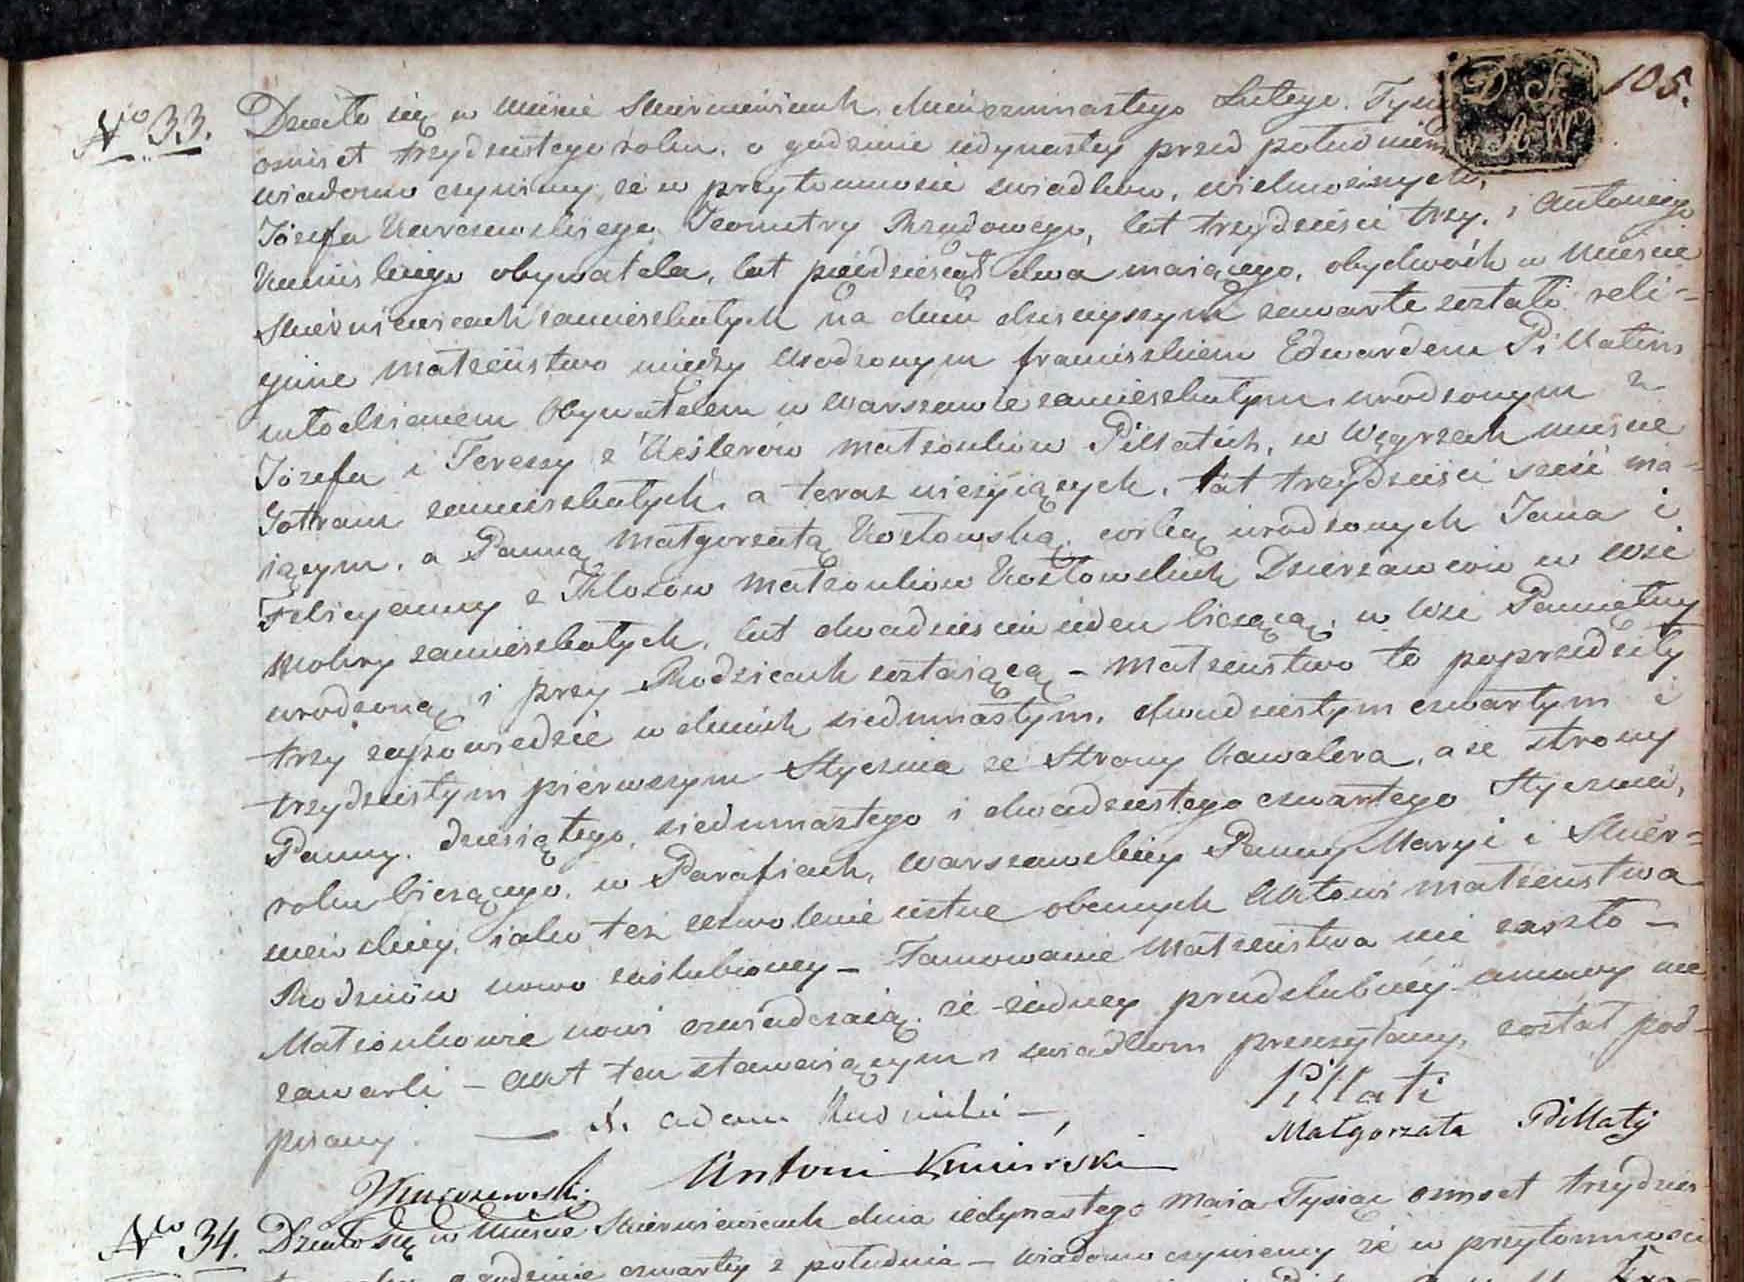 105.
D S
w A W
Nro 33. Działo się w Mieście Skierniewicach dnia czternastego Lutego. Tysiąc
osmset trzydziestego roku, o godzinie iedynastey przed południem
wiadomo czynimy, że w przytomności swiadków, wielmożnych,
Józefa Karczewskiego Jeometry Rządowego, lat trzydzieści trzy, i Antoniego
Kmińskiego obywatela, lat pięćdziesiąt dwa maiącego, obydwóch w Mieście
Skierniewicach zamieszkałych na dniu dzisieyszym zawarte zostało reli-
giine Małżeństwo między Urodzonym Franciszkiem Edwardem Pillatim
młodzianem Obywatelem w Warszawie zamieszkałym, urodzonym z
Józefa i Teressy z Keslerów Małżonków Pillatich, w Węgrzech mieście
zamieszkałych, a teraz nieżyiących, lat trzydzieści sześć ma-
iącym, a Panną Małgorzatą Kozłowską, corką urodzonych Jana i
Felicyanny z Klozów Małżonków Kozłowskich Dzierżawców w Wsi
Mokry zamieszkałych, lat dwadzieścia ieden liczącą, w Wsi Pamiętny
urodzoną i przy Rodzicach zostaiącą – Małżeństwo to poprzedziły
trzy zapowiedzie w dniach siedmnastym, dwudziestym czwartym i
trzydziestym pierwszym Stycznia ze Strony Kawalera, a ze strony
Panny, dziesiątego, siedmnastego i dwudziestego czwartego Stycznia,
roku bieżącego, w Parafiach, Warszawskiey Panny Maryi i Skier-
niewskiey, iako też zezwolenie ustne obecnych Aktowi Małżeństwa
Rodziców nowo zaślubioney – Tamowanie Małżeństwa nie zaszło –
Małżonkowie nowi oswiadczaią, że żadney przedslubney umowy nie
zawarli – Akt ten stawaiącym i swiadkom przeczytany, został pod-
pisany. — X. Adam —,
Pillati
Małgorzata Pillaty
JKarczewski Antoni Kmiński
Nro 34. Działo się w Mieście Skierniewicach dnia iedynastego Maia Tysiąc osmset trzydzies
godzinie czwartey z południa – wiadomo czyniemy że w przytomności